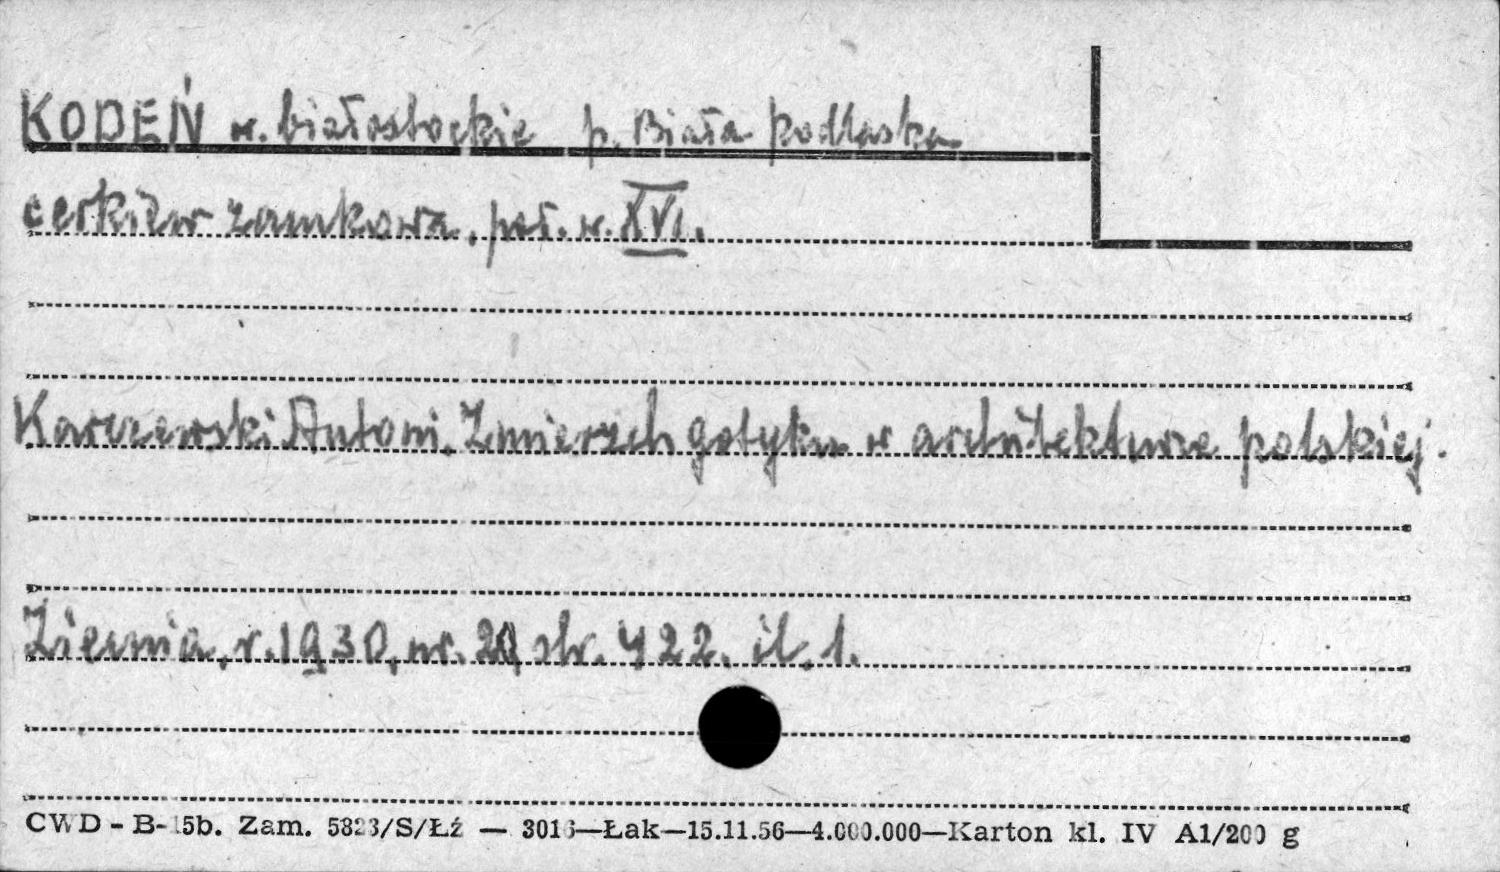 KODEŃ w. białostockie p. Biała Podlaska
cerkiew zamkowa, poł. w. XVI.
Karczewski Antoni. Zmierzch gotyku w architekturze polskiej.
Ziemia, r. 1930, nr. 20 str. 422. il. 1.
CWD - B-15b. Zam. 5823/S/Łź — 3016—Łak—15.11.56—4.000.000—Karton kl. IV A1/200 g